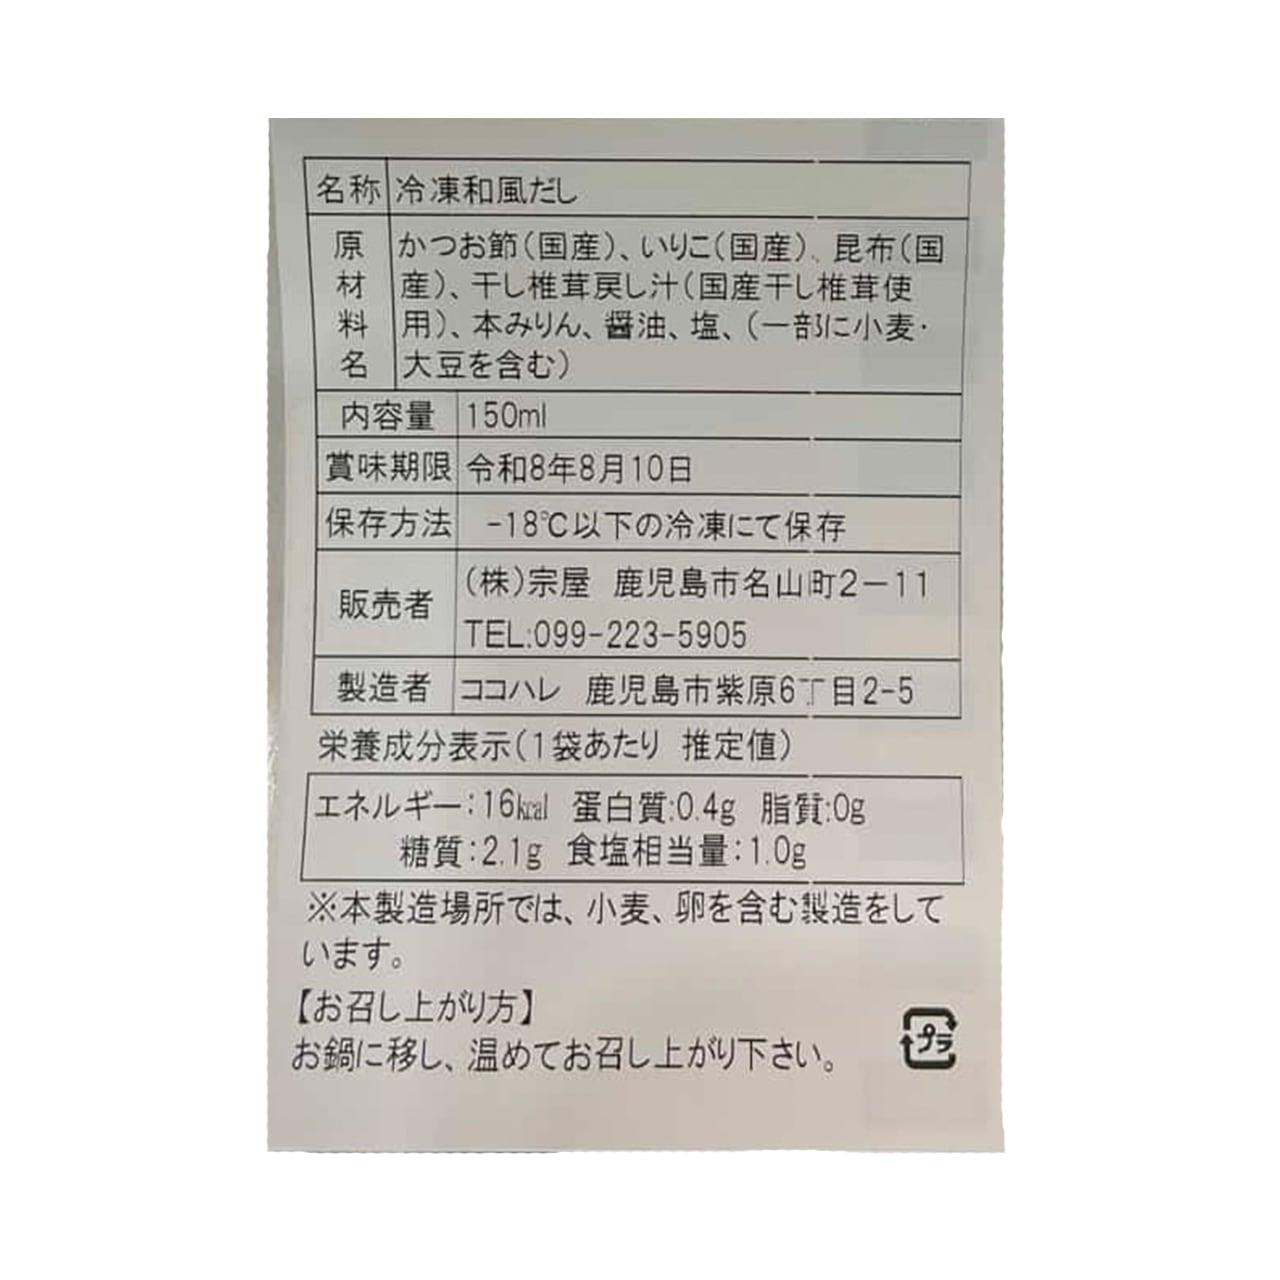 名称 冷凍和風だし
原材料名 かつお節(国産)、いりこ(国産)、昆布(国
産)、干し椎茸戻し汁(国産干し椎茸使
用)、本みりん、醤油、塩、(一部に小麦・
大豆を含む)
内容量 150ml
賞味期限 令和8年8月10日
保存方法 -18℃以下の冷凍にて保存
販売者 (株)宗屋 鹿児島市名山町2−11
TEL:099-223-5905
製造者 ココハレ 鹿児島市紫原6丁目2-5
栄養成分表示(1袋あたり 推定値)
エネルギー:16㎉ 蛋白質:0.4g 脂質:0g
糖質:2.1g 食塩相当量:1.0g
※本製造場所では、小麦、卵を含む製造をして
います。
【お召し上がり方】
お鍋に移し、温めてお召し上がり下さい。
プラ